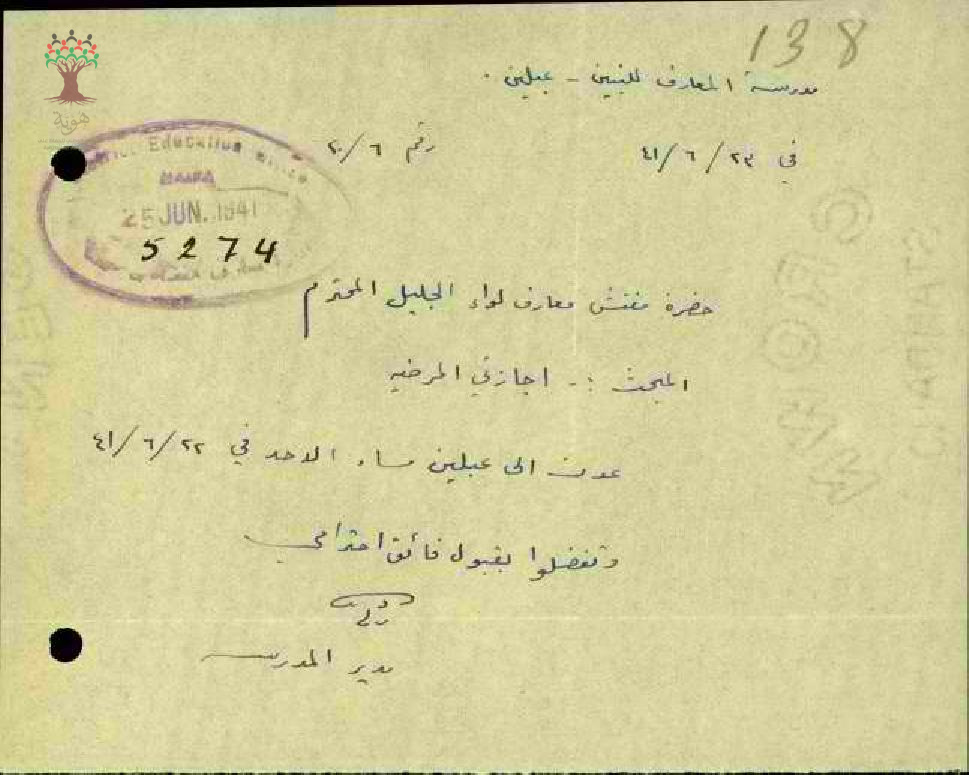 138
مدرسة المعارف للبنين - عبلين .
في ٢٣ / ٦ / ٤١
رقم ٦ / ٢٠
هوية
District Education Office
HAIFA
25 JUN. 1941
5274
حضرة مفتش معارف لواء الجليل المحترم
المبحث :- اجازتي المرضيه
عدت الى عبلين مساء الاحد في ٢٢ / ٦ / ٤١
وتفضلوا بقبول فائق احترامي
مدير المدرسه